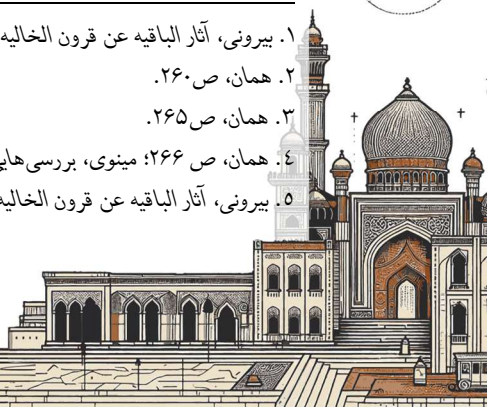 ۱. بیرونی، آثار الباقیه عن قرون الخالیه
۲. همان، ص۲۶۰.
۳. همان، ص۲۶۵.
٤. همان، ص ۲۶۶؛ مینوی، بررسی‌هایی
٥. بیرونی، آثار الباقیه عن قرون الخالیه